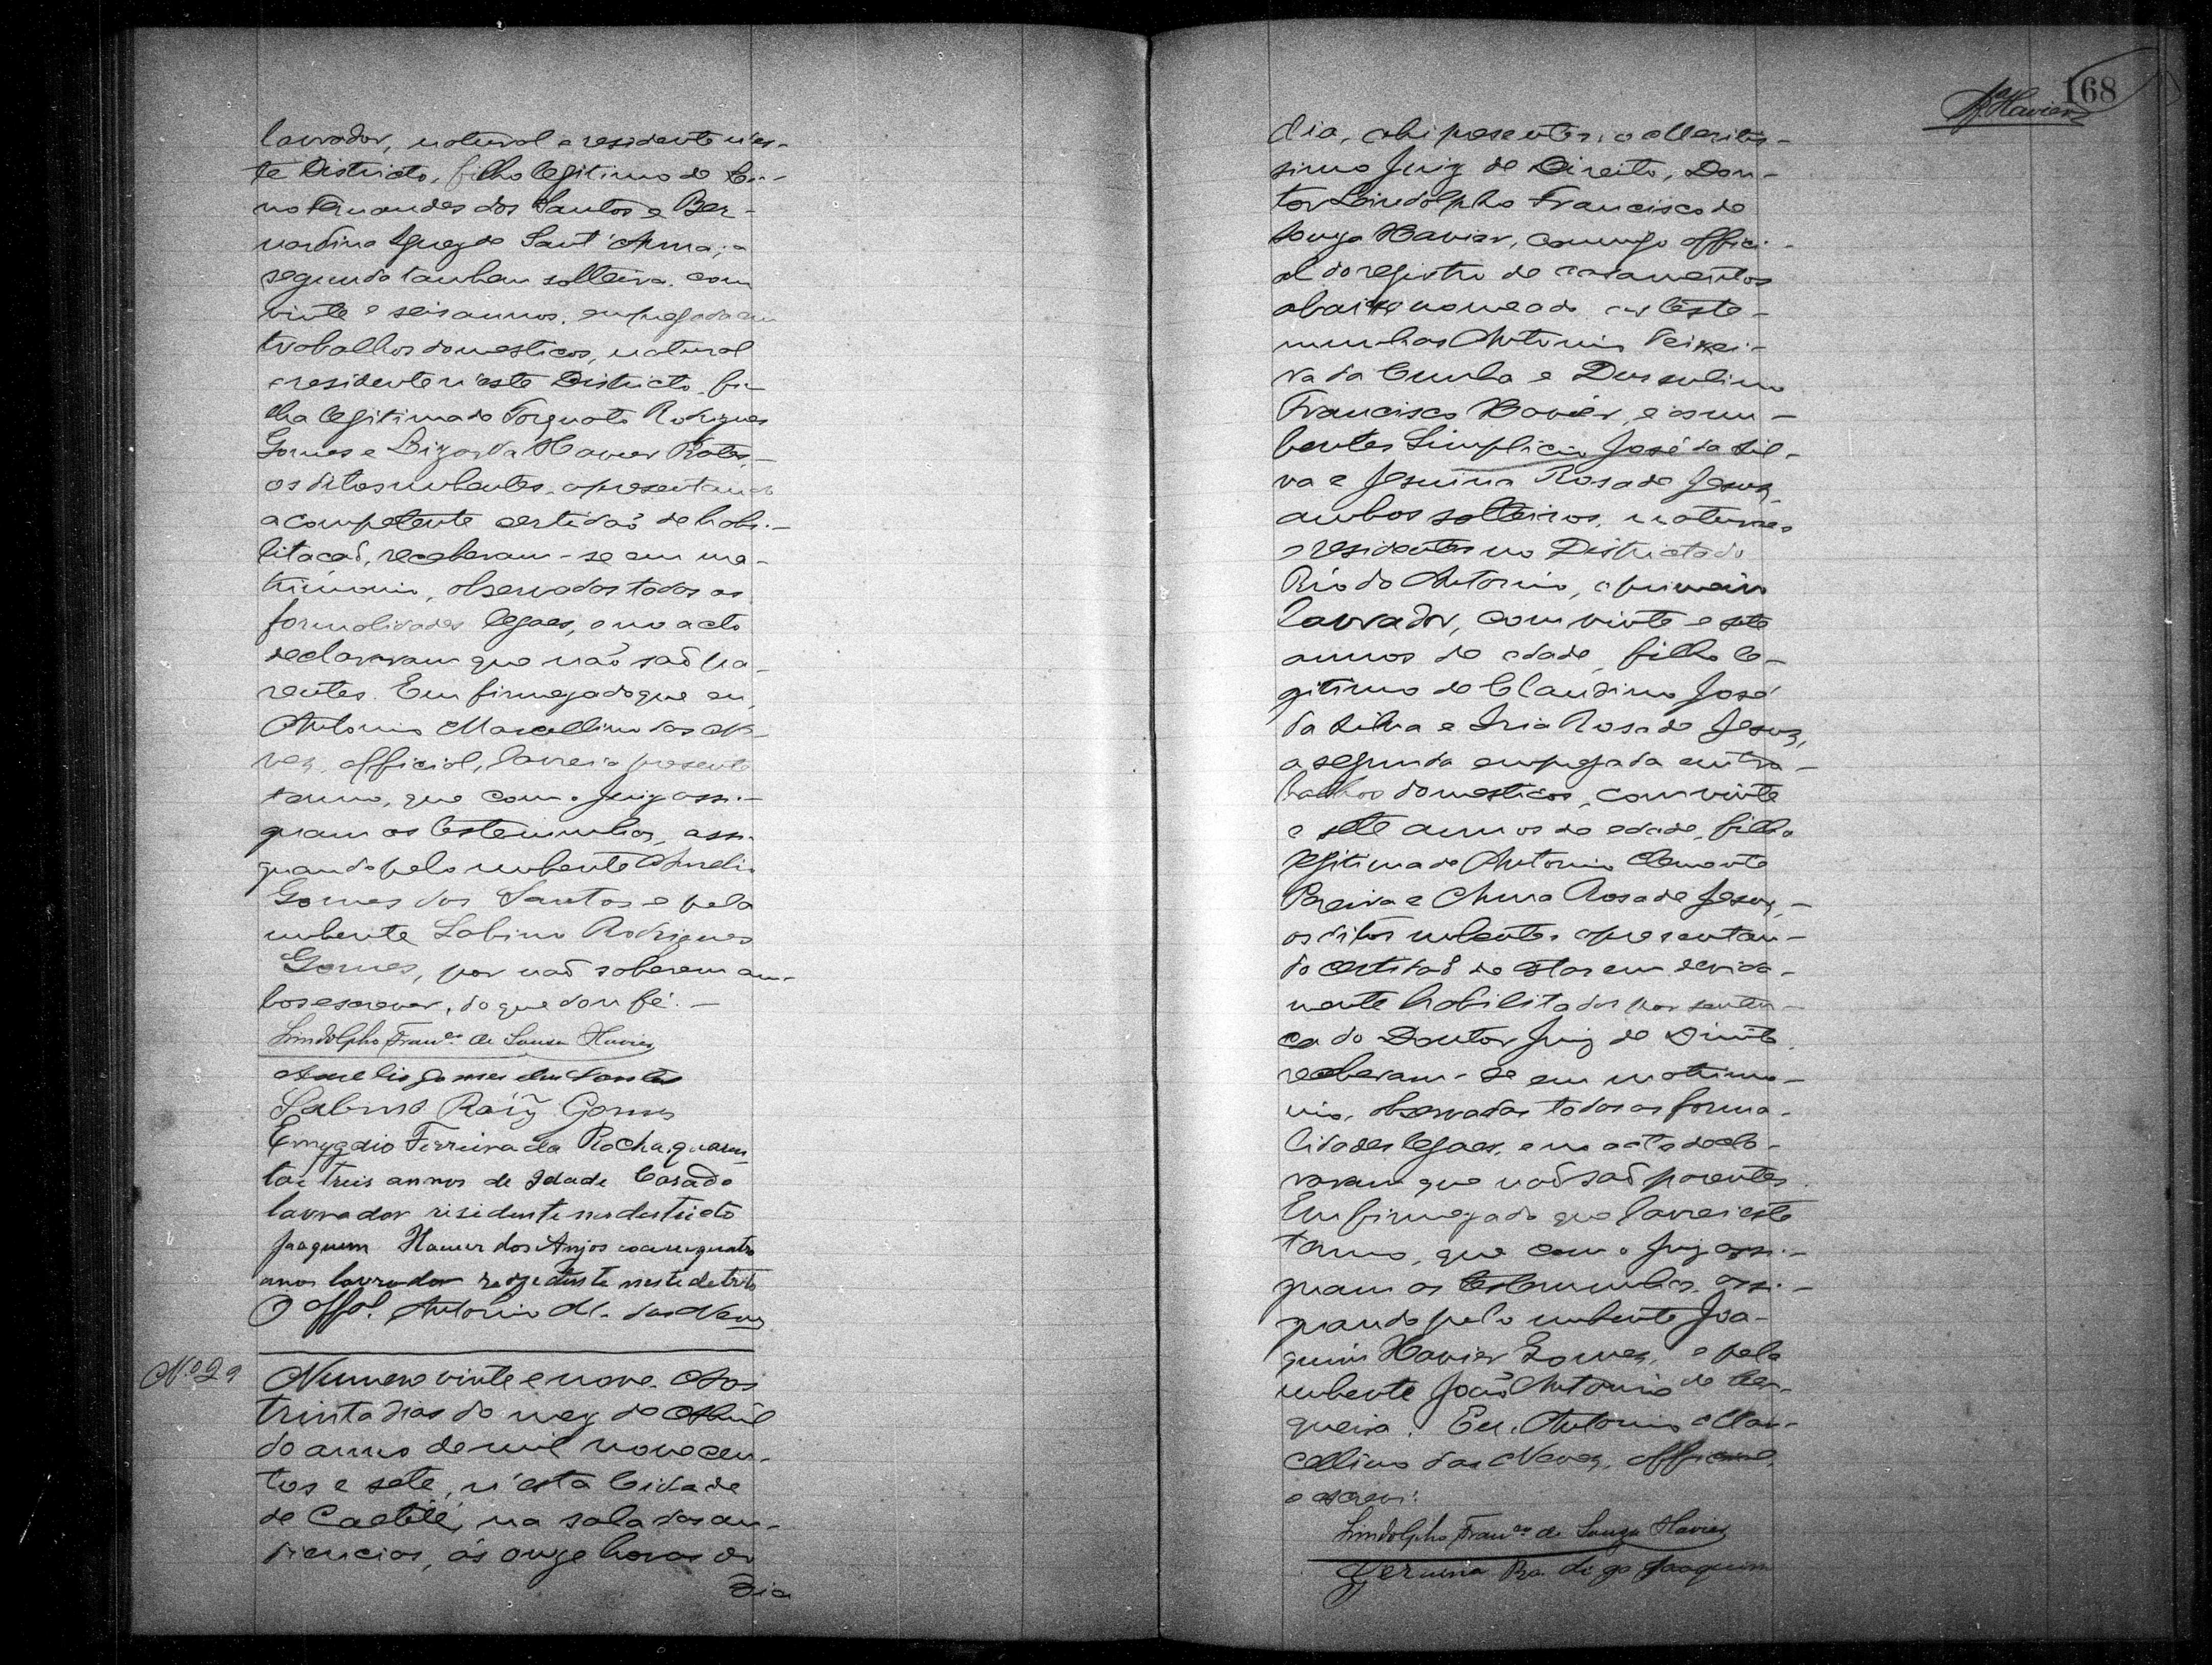 lavrador, natural e residente n'es-
te Districto, filho legitimo de
no Fernandes dos Santos e Ber-
nardina Ignez de Sant'Anna; a
segunda tambem solteira, com
vinte e seis annos, empregada em
trabalhos domesticos, natural
e residente n'este Districto, fi-
lha legitima de Torquato Rodrigues
Gomes e Xavier
os ditos nubentes, apresentando
a competente certidaõ de habi-
litacaõ, receberam-se em ma-
trimonio, observadas todas as
formalidades legaes, e no acto
declararam que naõ saõ pa-
rentes. Em firmeza do que eu,
Antonio Marcellino das Ne-
ves, official, lavrei o presente
termo, que com o Juiz assi-
gnam as testemunhas, assi-
gnando pelo nubente Amelio
Gomes dos Santos e pela
nubente Sabino Rodrigues
Gomes, por naõ saberem am-
bos escrever, do que dou fé.-
Lindolpho Franco de Souza Xavier
Amelio gomes dos Santos
Sabino Roiz Gomes
Emygdio Ferreira da Rocha, quaren
ta e treis annos de Idade Casado
lavrador risidente nes destricto
Joaquim Xavier dos Anjos quatro
anos lavrador neste
O offal. Antonio M. das Neves
Nº 29
Numero vinte e nove. Aos
trinta dias do mez de Abril
do anno de mil novecen-
tos e sete, n'esta Cidade
de Caetité, na sala das au-
diencias, ás onze horas do
dia
168
Xavier
dia, ahi presentes: o Meritis-
simo Juiz de Direito, Dou-
tor Lindolpho Francisco de
Souza Xavier, commigo offici-
al do registro de casamentos
abaixo nomeado, as teste-
munhas Antonio Teixei-
ra da Cunha e Dursulino
Francisco Xavier, e os nu-
bentes Simplicio José da Sil-
va e Jesuina Rosa de Jesuz,
ambos solteiros, naturaes
e residentes no Districto do
Rio do Antonio, o primeiro
lavrador, com vinte e sete
annos de edade, filho le-
gitimo de Claudino José
da Silva e Iria Rosa de Jesuz,
a segunda empregada em tra-
balhos domesticos, com vinte
e sete annos de edade, filha
legitima de Antonio Clemente
Pereira e Anna Rosa de Jesuz,-
os ditos nubentes apresentan-
do certidaõ de estarem devida-
mente habilitados por senten-
ca do Doutor Juiz de Direito,
receberam-se em matrimo-
nio, observadas todas as forma-
lidades legaes, e no acto decla-
raram que naõ saõ parentes.
Em firmeza do que lavrei este
termo, que com o Juiz assi-
gnam as testemunhas, assi-
gnando pelo nubente Joa-
quim Xavier Gomes, e pela
nubente Joaõ Antonio de Cer-
queira. Eu, Antonio Mar-
cellino das Neves, official,
o escrevi:
Lindolpho Franco de Souza Xavier
digo Joaquim